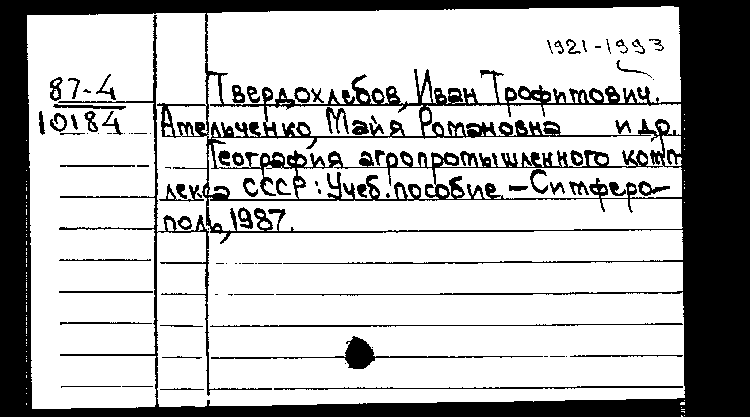 1921-1993
87-4
10184
Твердохлебов, Иван Трофимович.
Амельченко, Майя Романовна и др.
География агропромышленного комп
лекса СССР: Учеб. пособие. – Симферо–
поль, 1987.